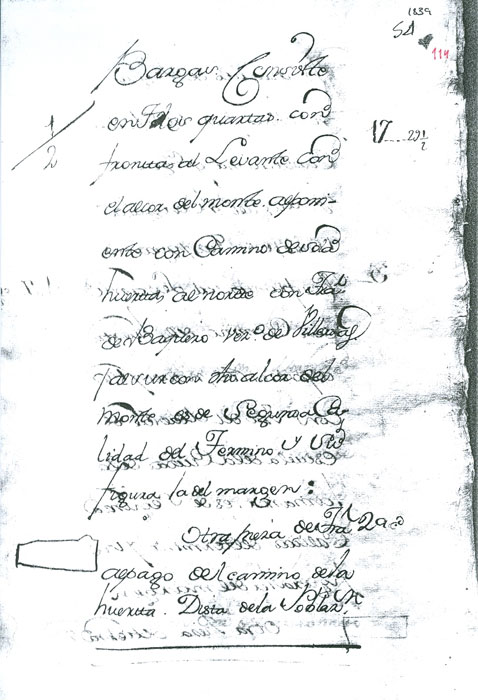 1839
54
114
Bargas Consiste
en tres quartas con
1
2
17 29 1/2
fronta al Levante con
el alcor del monte al poni-
ente con Camino de dha
huerta al norte con Fran.co
de Baptero vez.o de Villovas
y al sur con otro alcor del
monte es de Segunda Ca-
lidad del Termino y su
figura la del margen:
Otra pieza de Tra. 2a
al pago del camino de la
huerta. Dista de la Poblaz.n